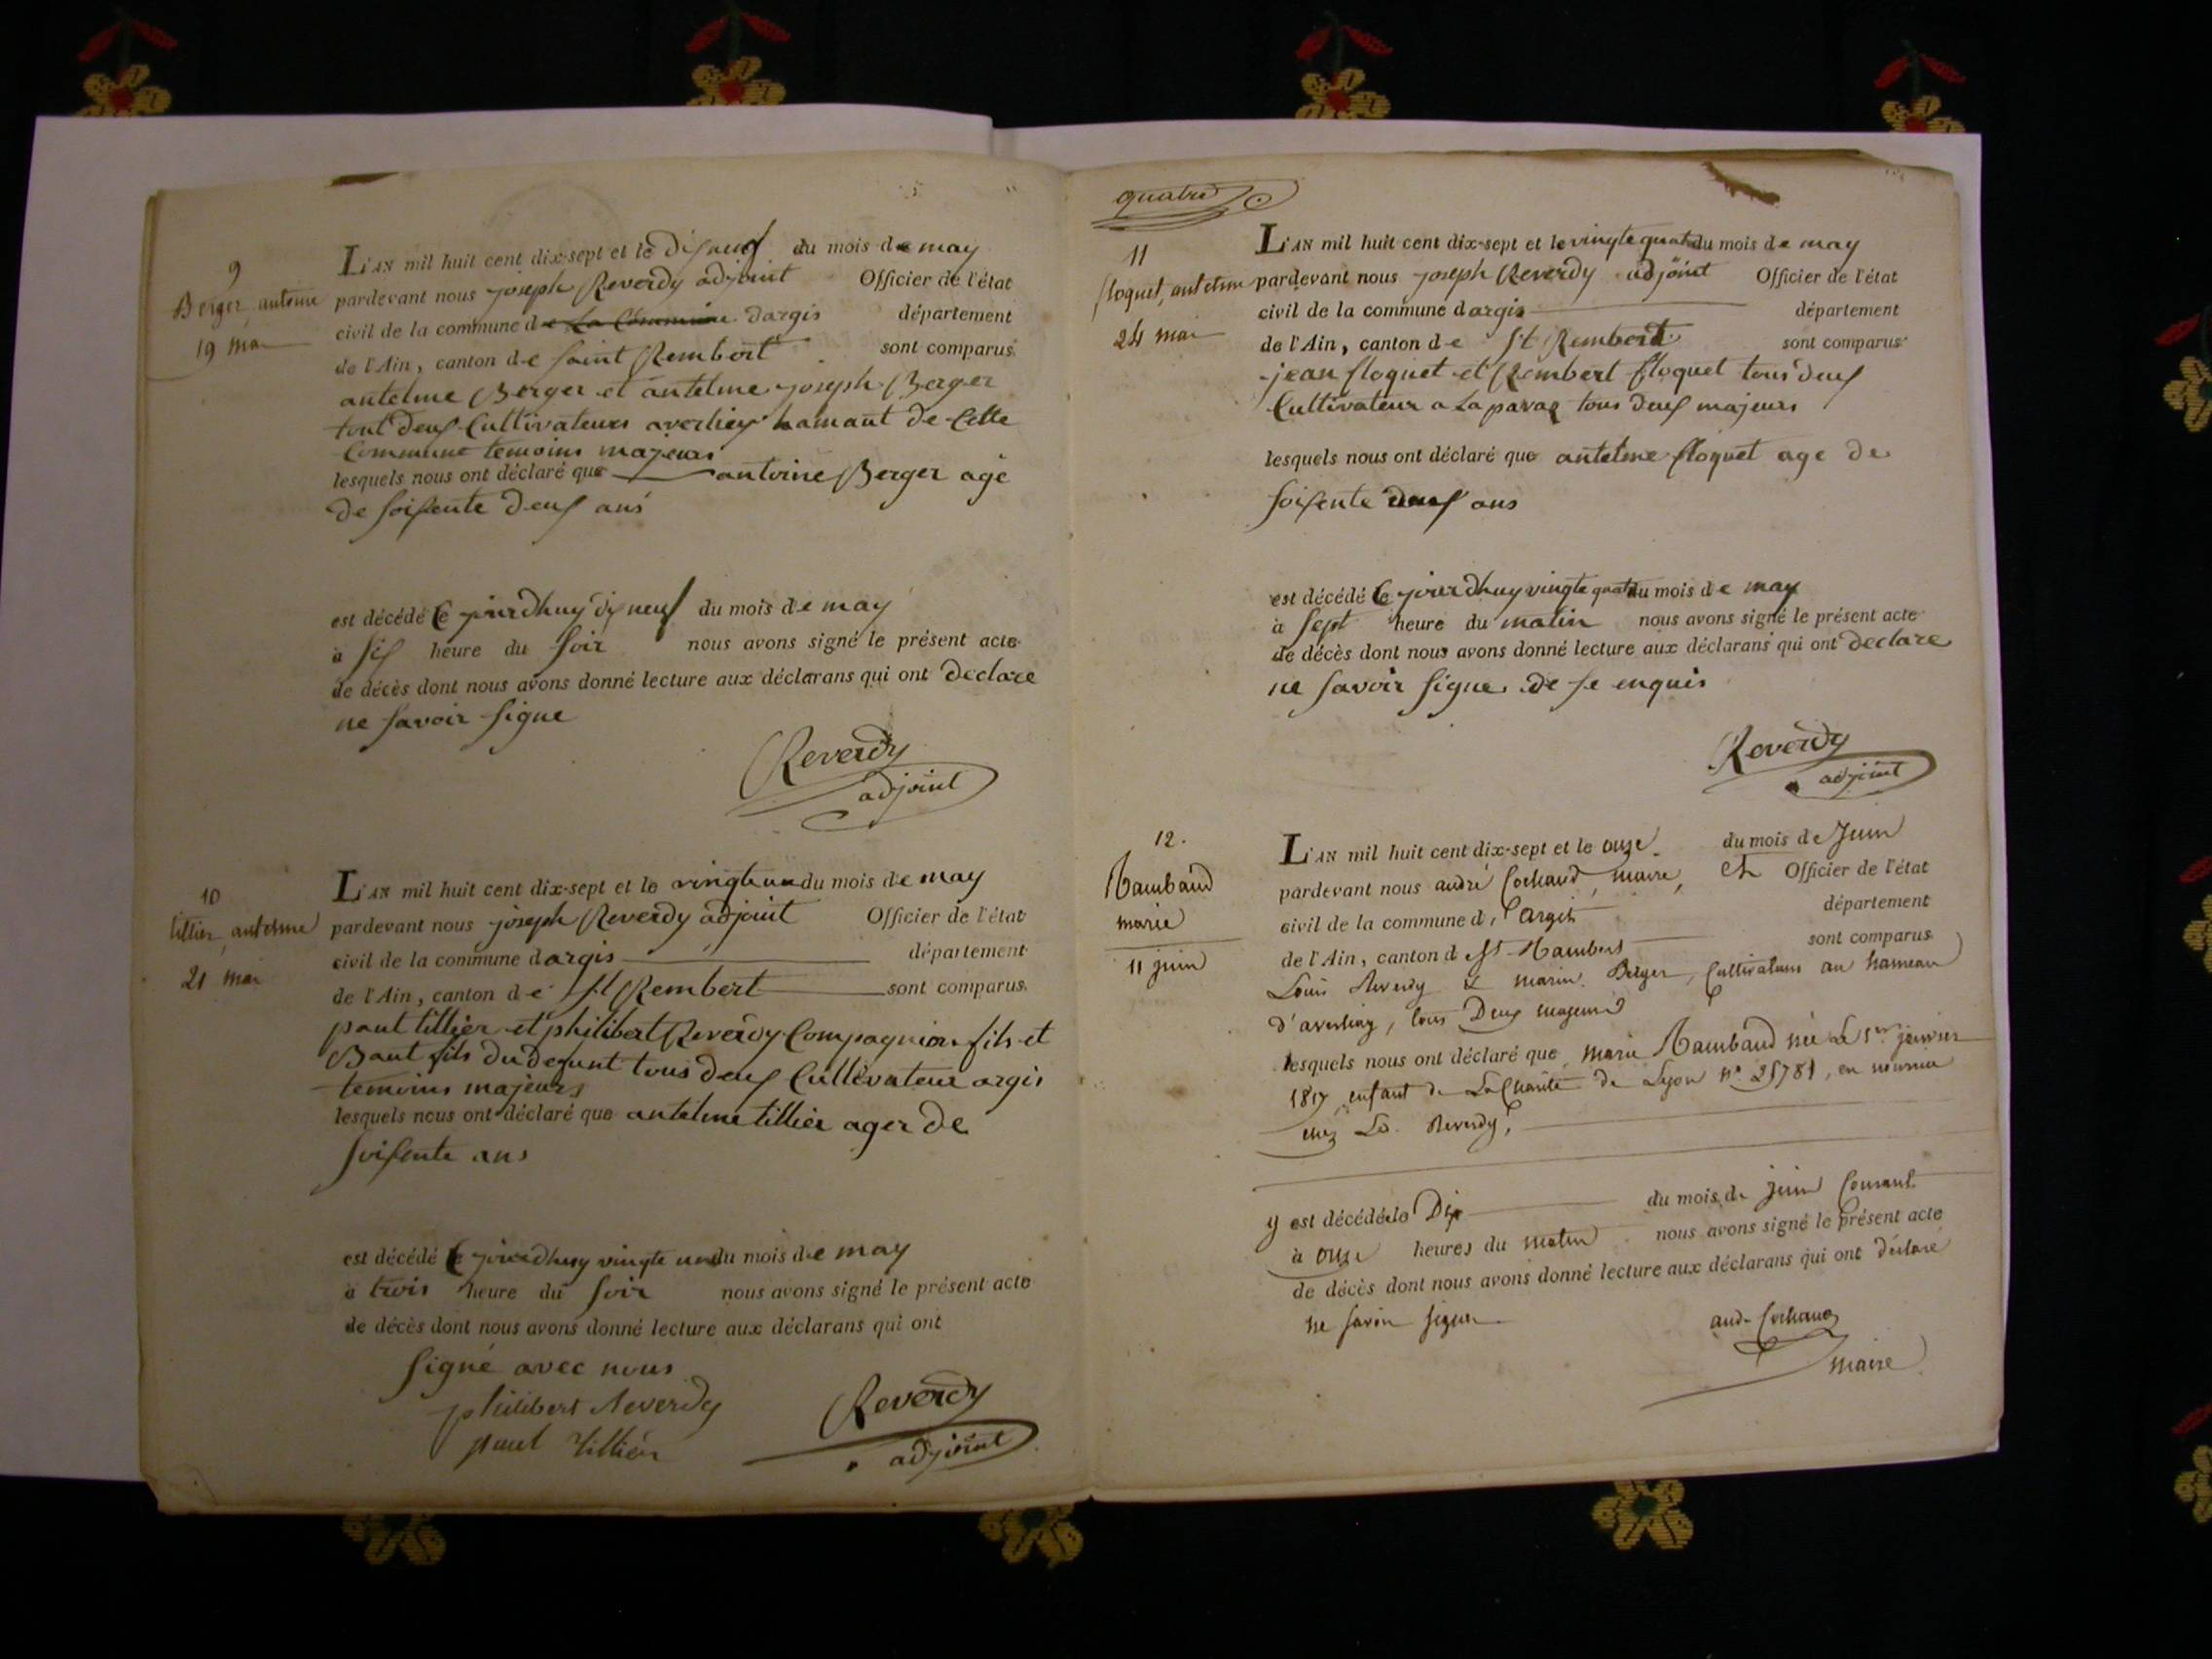 9
Berger, antoine
19 mai
L'AN mil huit cent dix-sept et le dix neuf du mois de may
pardevant nous joseph Reverdy adjoint Officier de l'état
civil de la commune de la Commune dargis département
de l'Ain, canton de saint Rembert sont comparus
antelme Berger et antelme joseph Berger
tout deux Cultivateurs averliey hamaut de Cette
Commune temoins majeurs
lesquels nous ont déclaré que antoine Berger agé
de soisente deux ans
est décédé Ce jourdhuy dix neuf du mois de may
à six heure du soir nous avons signé le présent acte
de décès dont nous avons donné lecture aux déclarans qui ont declare
ne savoir signe
Reverdy
adjoint
10
tillier, antelme
21 mai
L'AN mil huit cent dix-sept et le vingte un du mois de may
pardevant nous joseph Reverdy adjoint Officier de l'état
civil de la commune dargis département
de l'Ain, canton de St Rembert sont comparus
paul tillier et philibert Reverdy Compagnion fils et
Baut fils du defunt tous deux Cultivateur argis
temoins majeurs
lesquels nous ont déclaré que antelme tillier ager de
soisente ans
est décédé Ce jourdhuy vingte un du mois de may
à trois heure du soir nous avons signé le présent acte
de décès dont nous avons donné lecture aux déclarans qui ont
signé avec nous
philibert Reverdy
paul tillier
Reverdy
adjoint
quatre
11
floquet, antelme
24 mai
L'AN mil huit cent dix-sept et le vingte quatre du mois de may
pardevant nous joseph Reverdy adjoint Officier de l'état
civil de la commune dargis département
de l'Ain, canton de St Rembert sont comparus
jean floquet et Rembert floquet tous deux
Cultivateur a la tous deux majeurs
lesquels nous ont déclaré que antelme floquet age de
soisente deux ans
est décédé Ce jourdhuy vingte quatre du mois de may
à sept heure du matin nous avons signé le présent acte
de décès dont nous avons donné lecture aux déclarans qui ont declare
ne savoir signe de se enquis
Reverdy
adjoint
12.
Rambaud
marie
11 juin
L'AN mil huit cent dix-sept et le onze du mois de Juin
pardevant nous andré Cochaud, maire, et Officier de l'état
civil de la commune d'argis département
de l'Ain, canton de St Rambert sont comparus
Louis Reverdy & marin Berger, Cultivateurs au hameau
d'averliaz, tous Deux majeurs
lesquels nous ont déclaré que marie Rambaud née Le 1er janvier
1817, enfant de La Charité de Lyon n° 25781, en nourrice
chez Ls. Reverdy,
y est décédée le Dix du mois de juin Courant
à onze heures du matin nous avons signé le présent acte
de décès dont nous avons donné lecture aux déclarans qui ont déclaré
ne savoir signer
and. Cochaud
maire